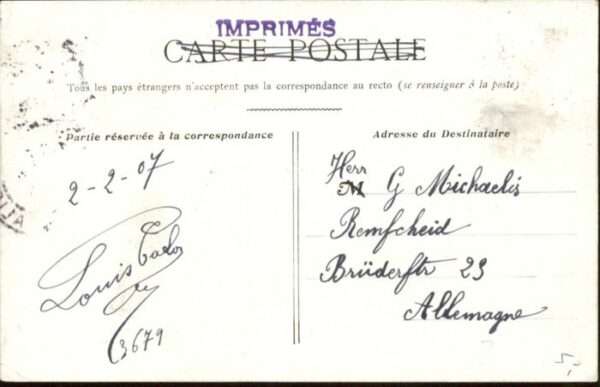 IMPRIMÉS
CARTE POSTALE
Tous les pays étrangers n'acceptent pas la correspondance au recto (se renseigner à la poste)
Partie réservée à la correspondance
2-2-07
Louis
3679
Adresse du Destinataire
Herr
M G Michaelis
Remscheid
Brüderstr 23
Allemagne
5,-